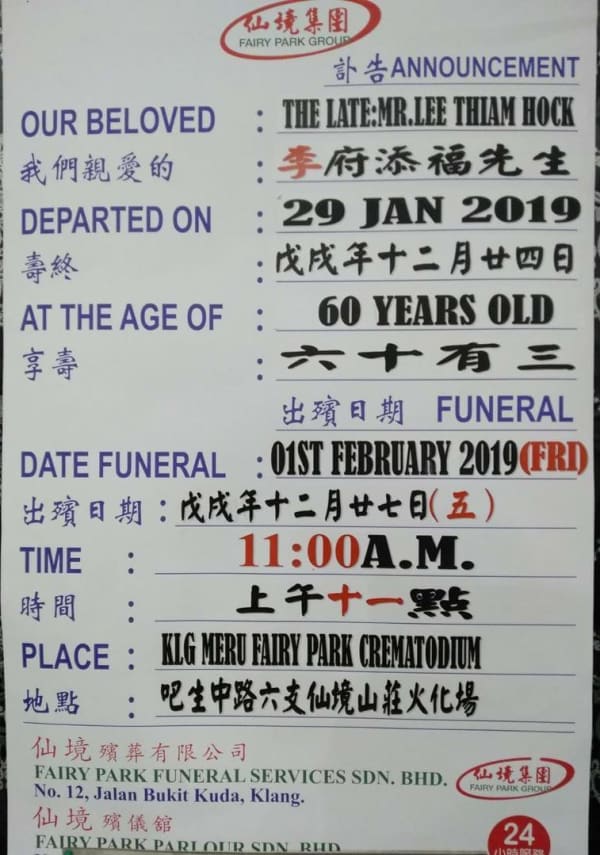 仙境集團
FAIRY PARK GROUP
訃告ANNOUNCEMENT
OUR BELOVED : THE LATE:MR.LEE THIAM HOCK
我們親愛的 : 李府添福先生
DEPARTED ON : 29 JAN 2019
壽終 : 戊戌年十二月廿四日
AT THE AGE OF : 60 YEARS OLD
享壽 : 六十有三
出殯日期 FUNERAL
DATE FUNERAL : 01ST FEBRUARY 2019(FRI)
出殯日期 : 戊戌年十二月廿七日(五)
TIME : 11:00A.M.
時間 : 上午十一點
PLACE : KLG MERU FAIRY PARK CREMATODIUM
地點 : 吧生中路六支仙境山莊火化場
仙境殯葬有限公司
FAIRY PARK FUNERAL SERVICES SDN. BHD.
No. 12, Jalan Bukit Kuda, Klang.
仙境集團
FAIRY PARK GROUP
仙境殯儀舘
FAIRY PARK PARLOUR SDN. BHD.
24
小時服務